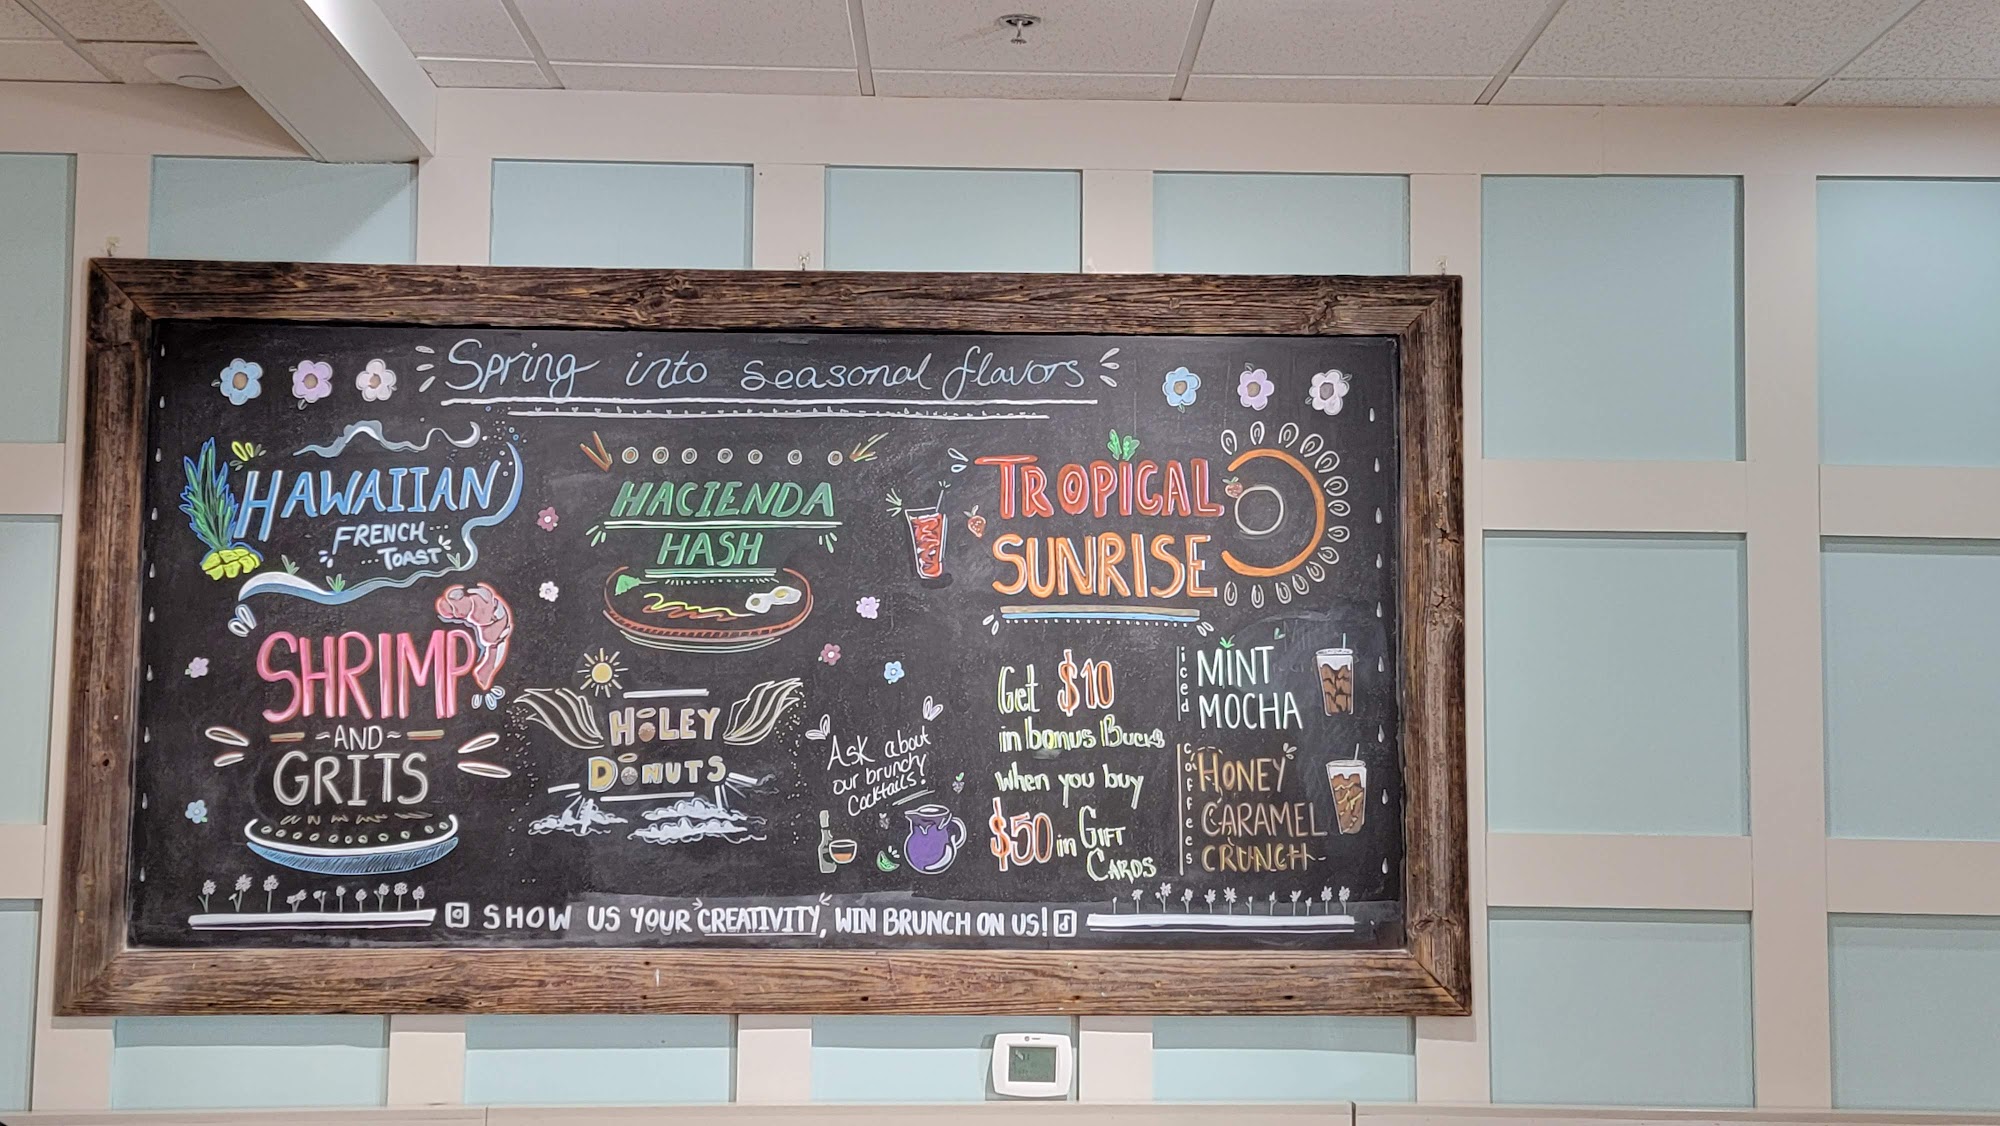 Spring into seasonal flavors
HAWAIIAN
FRENCH
TOAST
SHRIMP
AND
GRITS
HACIENDA
HASH
HOLEY
DONUTS
Ask about
our brunchy
Cocktails!
TROPICAL
SUNRISE
Get $10
in bonus Bucks
when you buy
$50 in GIFT
CARDS
iced
MINT
MOCHA
coffees
HONEY
CARAMEL
CRUNCH
SHOW US YOUR "CREATIVITY", WIN BRUNCH ON US!